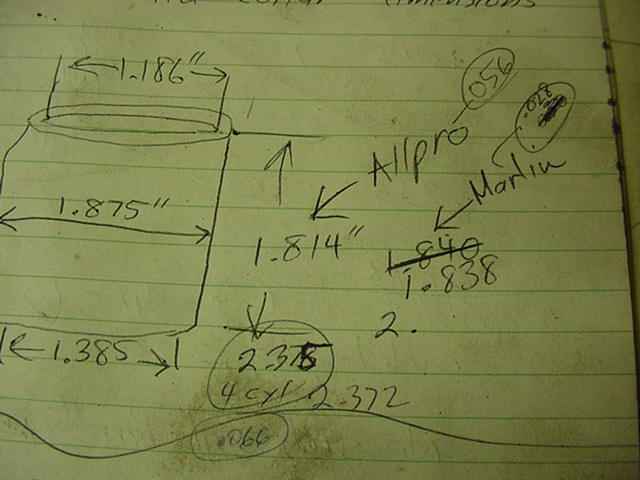 dimensions
1.186"
.056
Allpro
Marlin
1.875"
1.814"
1.840
1.838
2.
1.385
4 cyl 2.372
.066